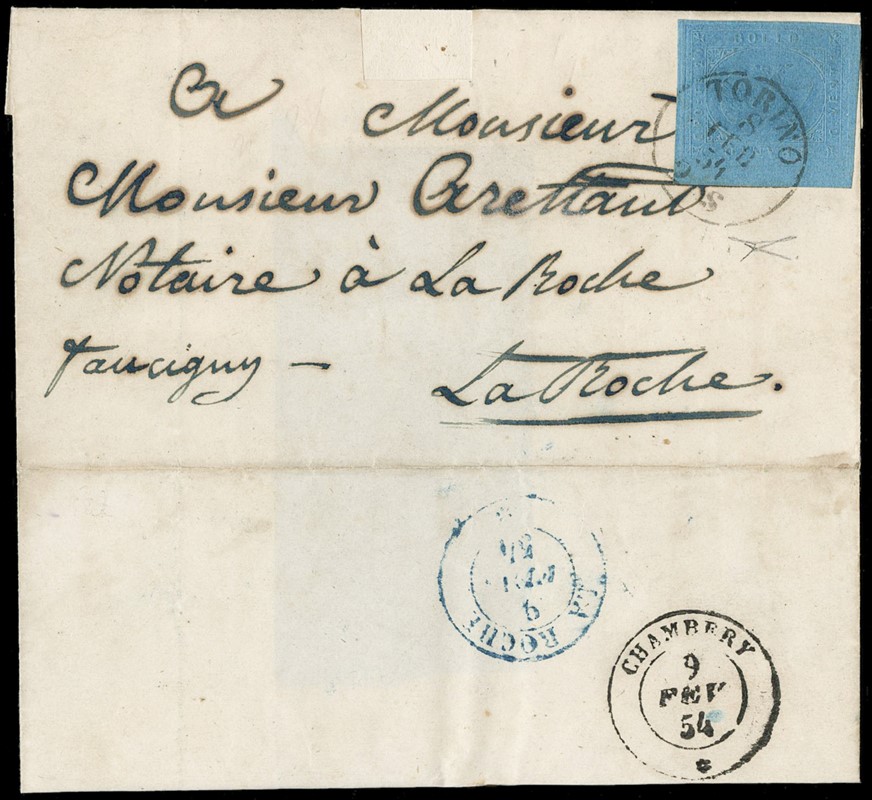 A Monsieur
Monsieur
Notaire à La Roche
faucigny —
La Roche.
BOLLO
TORINO
8
FEB
54
LA ROCHE
9
FEV
54
CHAMBERY
9
FEV
54